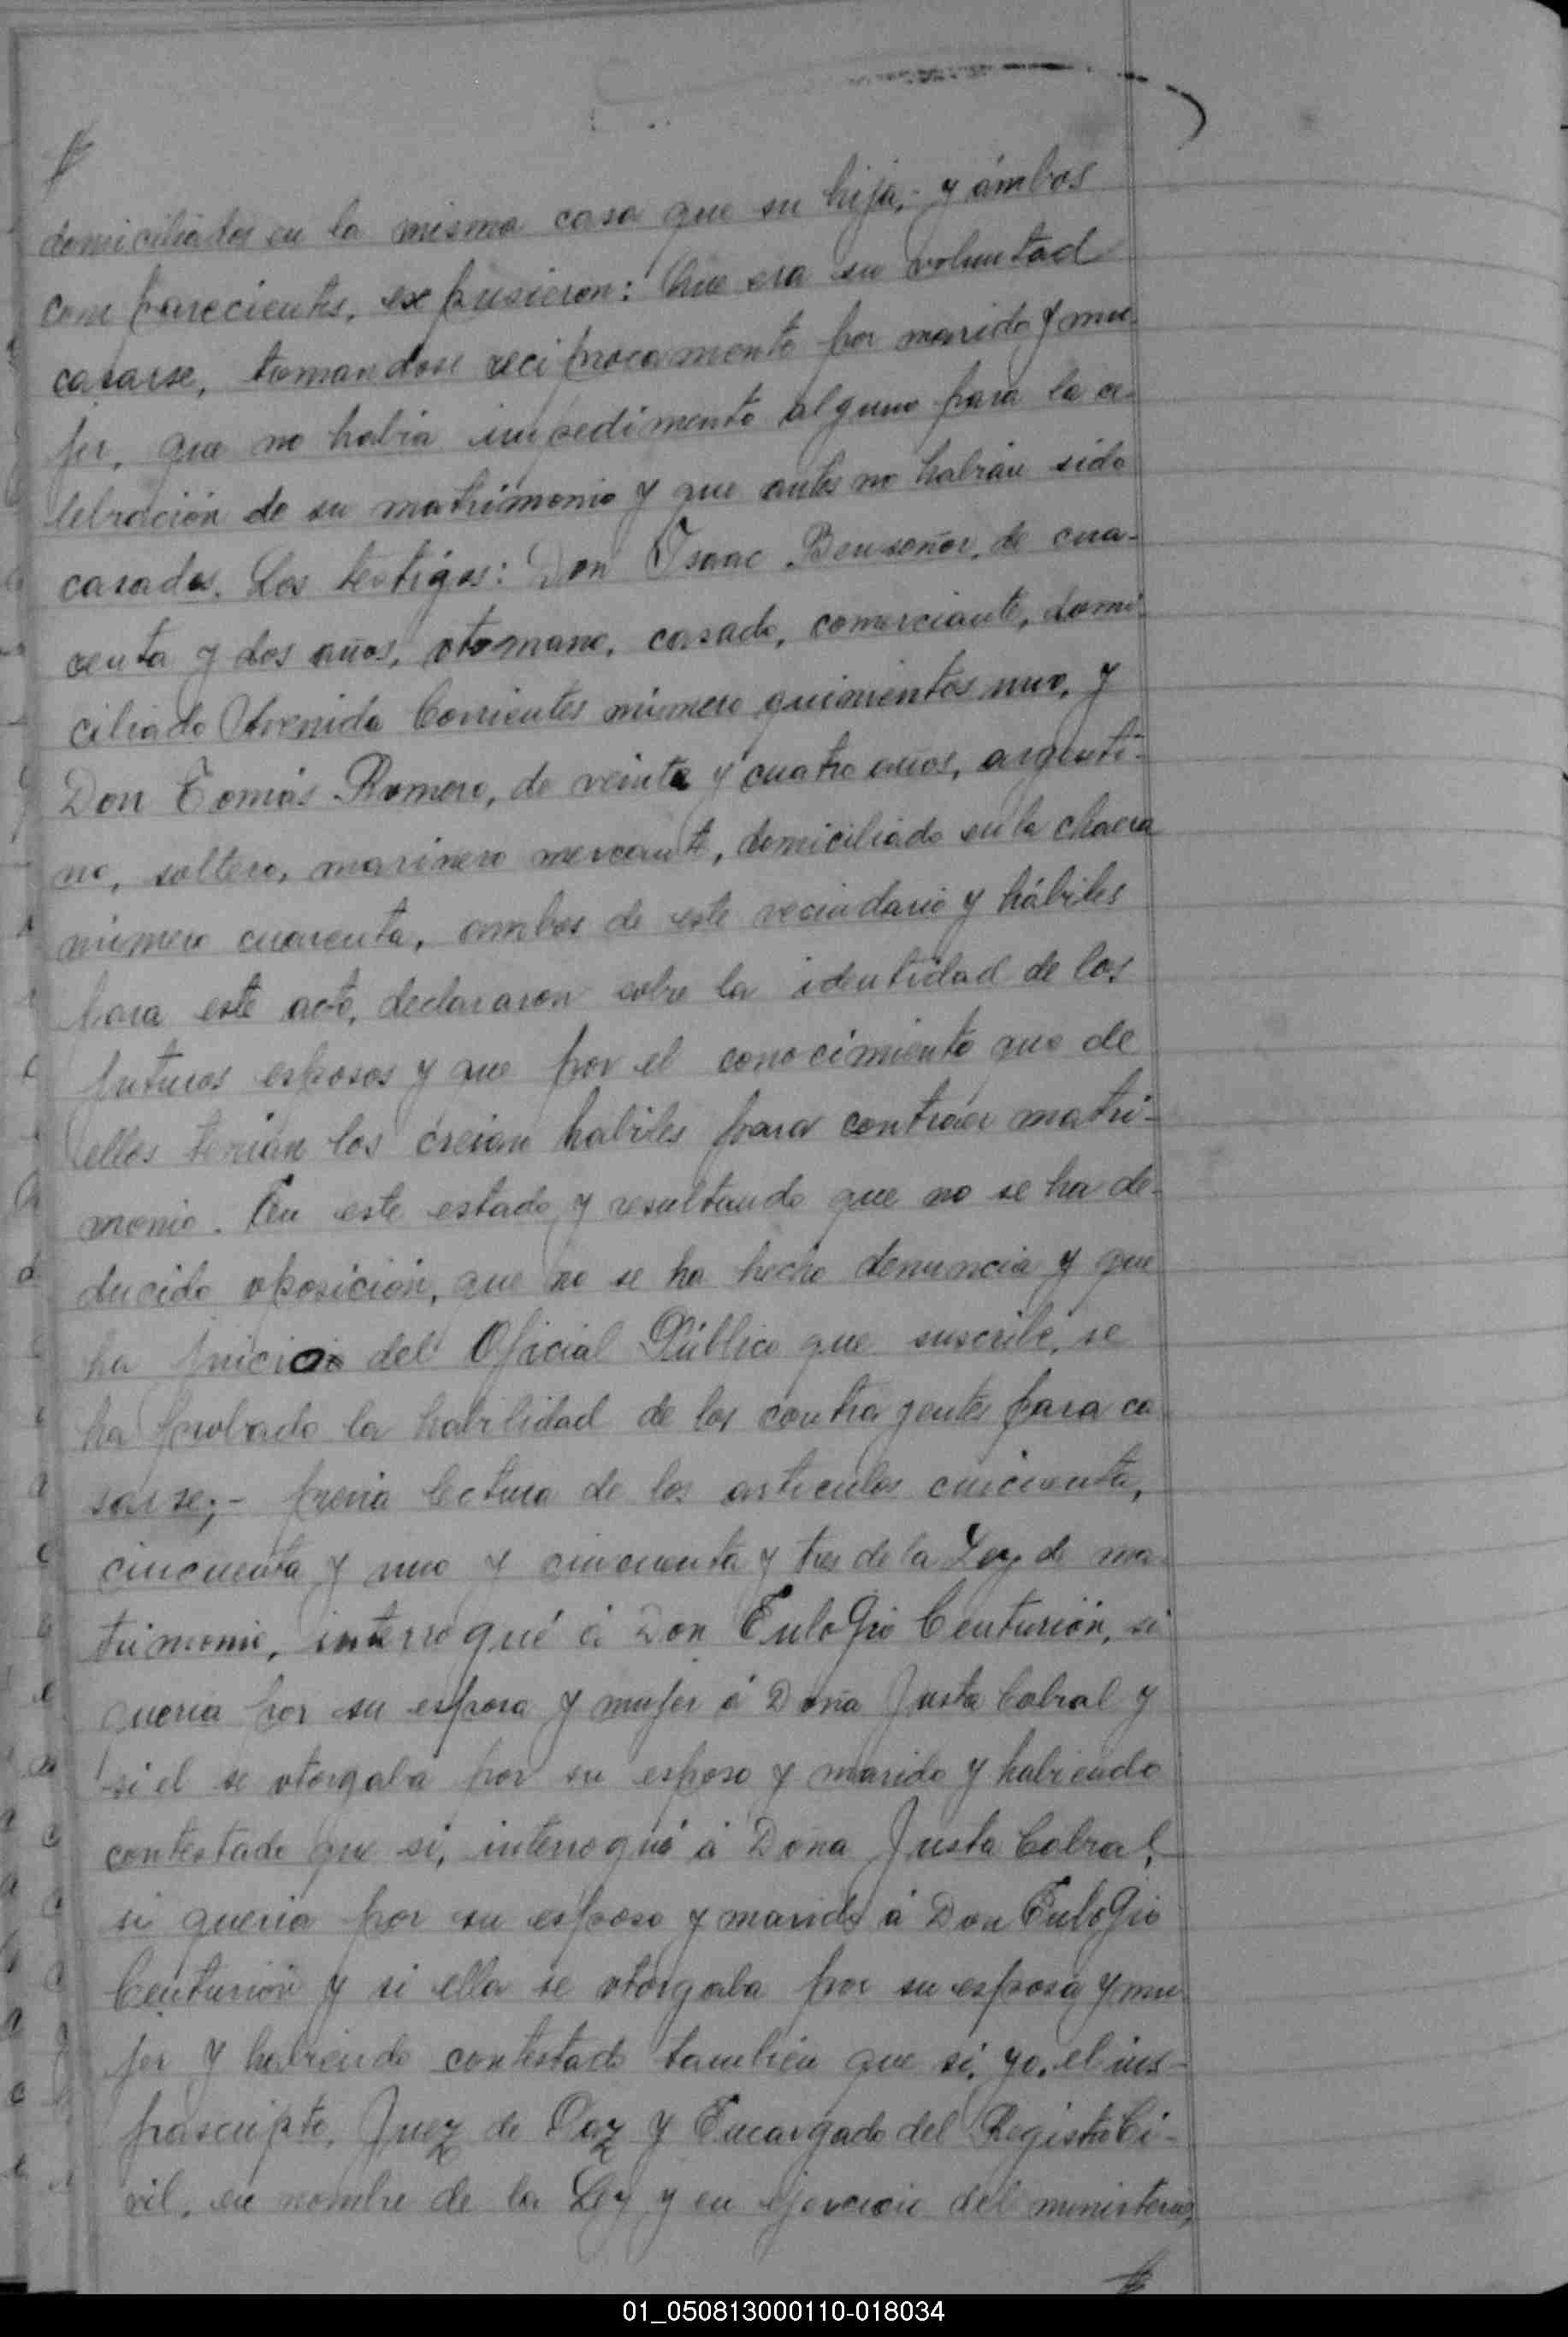 domiciliados en la misma casa que su hija,- y ámbos
comparecientes, expusieron: Que era su voluntad
casarse, tomandose reciprocamente por marido y mu-
jer, que no habia impedimento alguno para la ce-
lebración de su matrimonio y que antes no habian sido
casados. Los testigos: Don Isaac Benseñor, de cua-
renta y dos años, otomano, casado, comerciante, domi-
ciliado Avenida Corrientes número quinientos uno, y
Don Tomás Romero, de veinte y cuatro años, argenti-
no, soltero, marinero mercante, domiciliado en la chacra
número cuarenta, ambos de este vecindario y hábiles
para este acto, declararon sobre la identidad de los
futuros esposos y que por el conocimiento que de
ellos tenian los creian habiles para contraer matri-
monio. En este estado y resultando que no se ha de-
ducido oposición, que no se ha hecho denuncia y que
ha juicio del Oficial Público que suscribe, se
ha probado la habilidad de los contrayentes para ca
sarse;- previa lectura de los articulos cincuenta,
cincuenta y uno y cincuenta y tres de la Ley de ma-
trimonio, interrogué á Don Eulogio Centurión, si
queria por su esposa y mujer á Doña Justa Cabral y
si el se otorgaba por su esposo y marido y habiendo
contestado que si, interrogué á Doña Justa Cabral,
si queria por su esposo y marido á Don Eulogio
Centurión y si ella se otorgaba por su esposa y mu
jer y habiendo contestado tambien que si, yo, el ins-
frascripto, Juez de Paz y Encargado del Registro Ci-
vil, en nombre de la Ley y en ejercicio del ministerio,
01_050813000110-018034